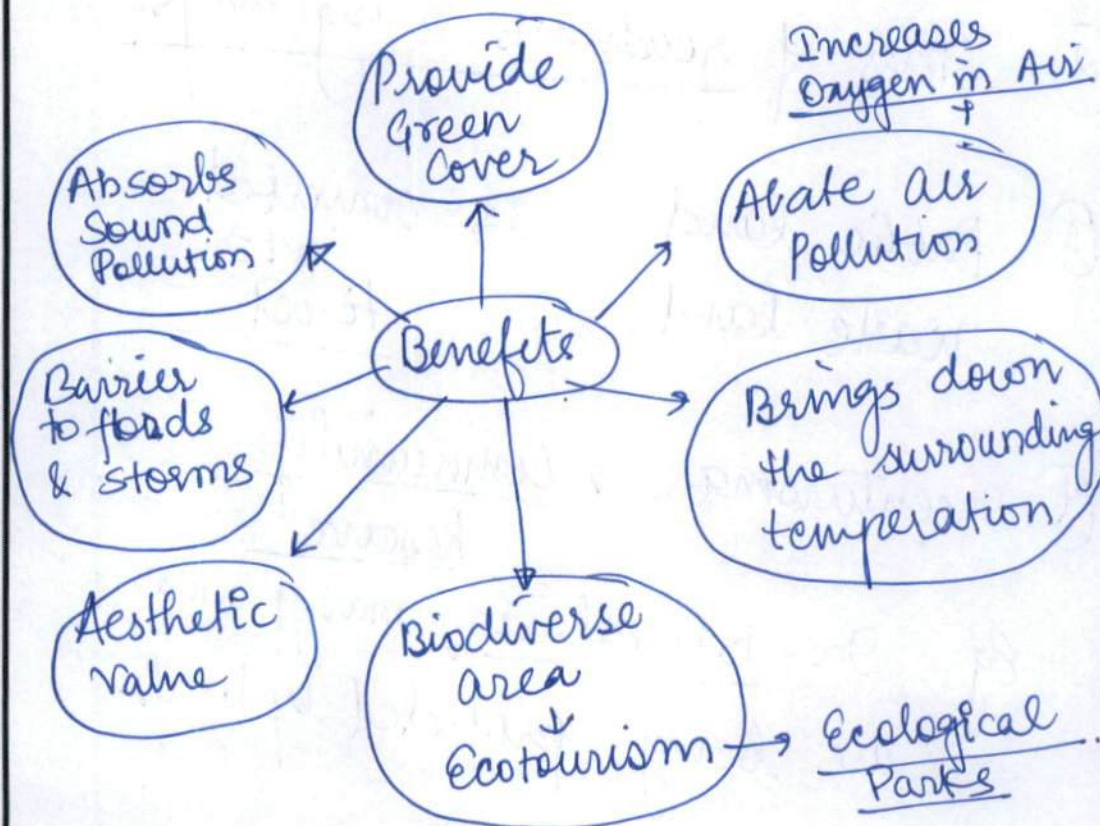 Provide
Green
Cover
Increases
Oxygen in Air
+
Abate air
Pollution
Absorbs
Sound
Pollution
Benefits
Barrier
to floods
& storms
Brings down
the surrounding
temperation
Aesthetic
Value
Biodiverse
area
↓
Ecotourism → Ecological
Parks